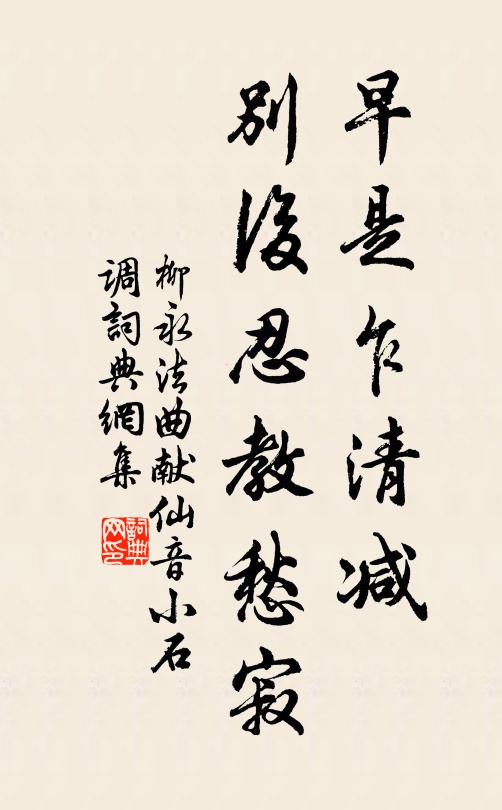 早是乍清减
别後忍教愁寂
柳永法曲献仙音小石
调詞典網集
詞典网印